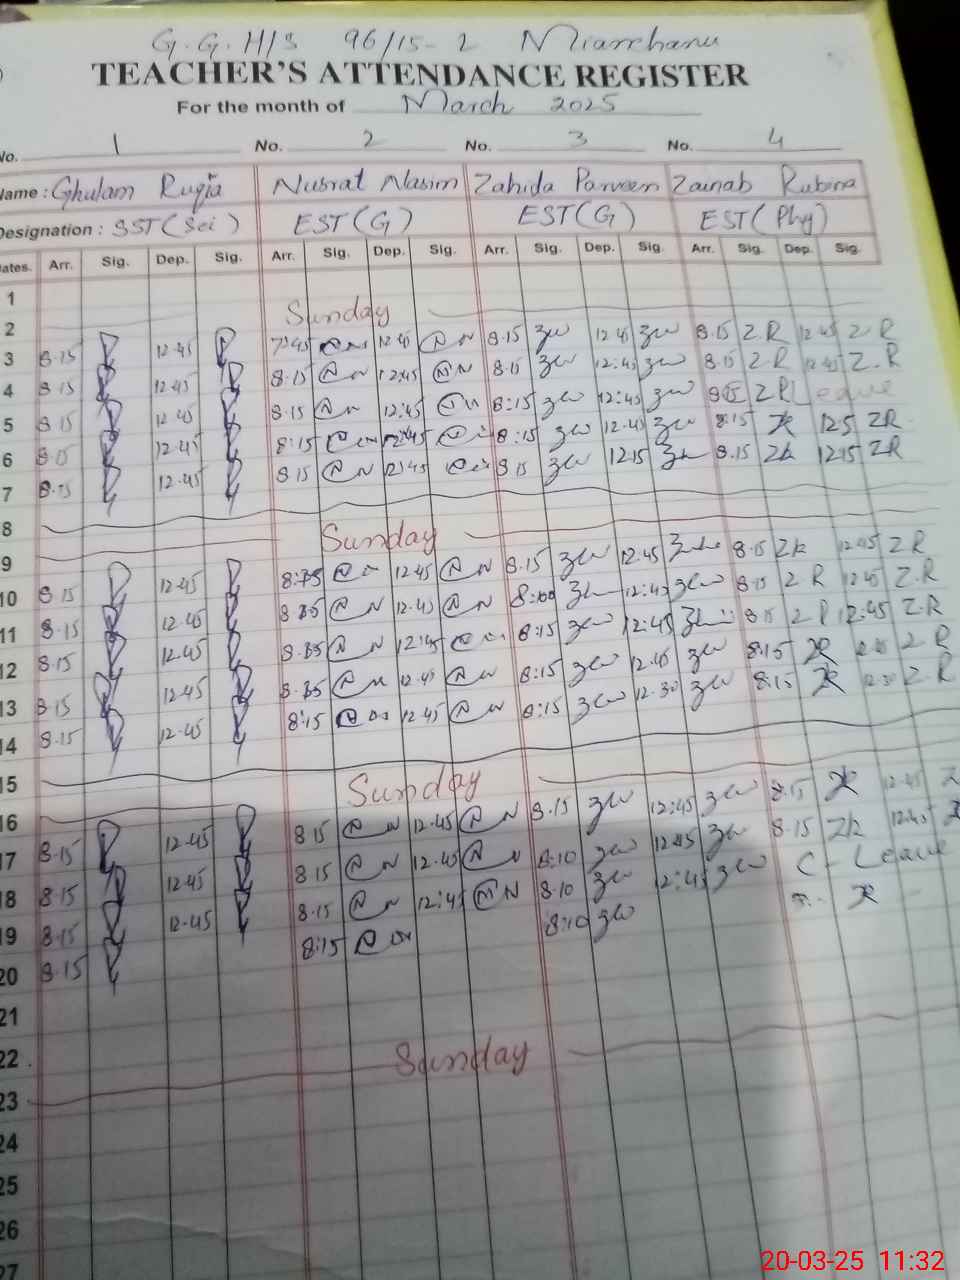 G.G.H/S 96/15-L Mianchanu
TEACHER'S ATTENDANCE REGISTER
For the month of March 2025
No. 1 No. 2 No. 3 No. 4
Name: Ghulam Ruqia Nusrat Nasim Zahida Parveen Zainab Rubina
Designation: SST (Sci) EST(G) EST(G) EST(Phy)
Dates. Arr. Sig. Dep. Sig. Arr. Sig. Dep. Sig. Arr. Sig. Dep. Sig. Arr. Sig. Dep. Sig.
1
2 Sunday
3 8.15 12.45 7:45 12.45 8.15 12.45 8.15 ZR 12.45 ZR
4 8.15 12.45 8.15 12:45 8.15 12:45 8.15 ZR 12.45 Z.R
5 8.15 12.45 8.15 12:45 8:15 12:45 8.15 ZR Leave
6 8.15 12.45 8:15 12:45 8:15 12.45 8.15 ZR 125 ZR
7 8.15 12.45 8.15 12:45 8.15 12.15 8.15 ZR 12.15 ZR
8
9 Sunday
10 8.15 12.45 12.45 8.15 12.45 8.15 ZR 12.45 ZR
11 8.15 12.45 12.45 8:00 12:45 8.15 ZR 12.45 Z.R
12 8.15 12.45 12:45 8:15 12:45 8.15 ZR 12:45 Z.R
13 8.15 12.45 12.45 8:15 12.45 8:15 ZR ZR
14 8.15 12.45 8:15 12.45 8:15 12.30 8:15 ZR 12.30 Z.R
15
16 Sunday
17 8.15 12.45 8.15 12.45 8.15 12:45 8.15 ZR 12.45
18 8.15 12.45 8.15 12.45 8:10 12:45 8.15 ZR 12.45
19 8.15 12.45 8.15 12:45 8.10 12:45 C-Leave
20 8.15 8:15 8:10 ZR
21
22
23 Sunday
24
25
26
27
20-03-25 11:32